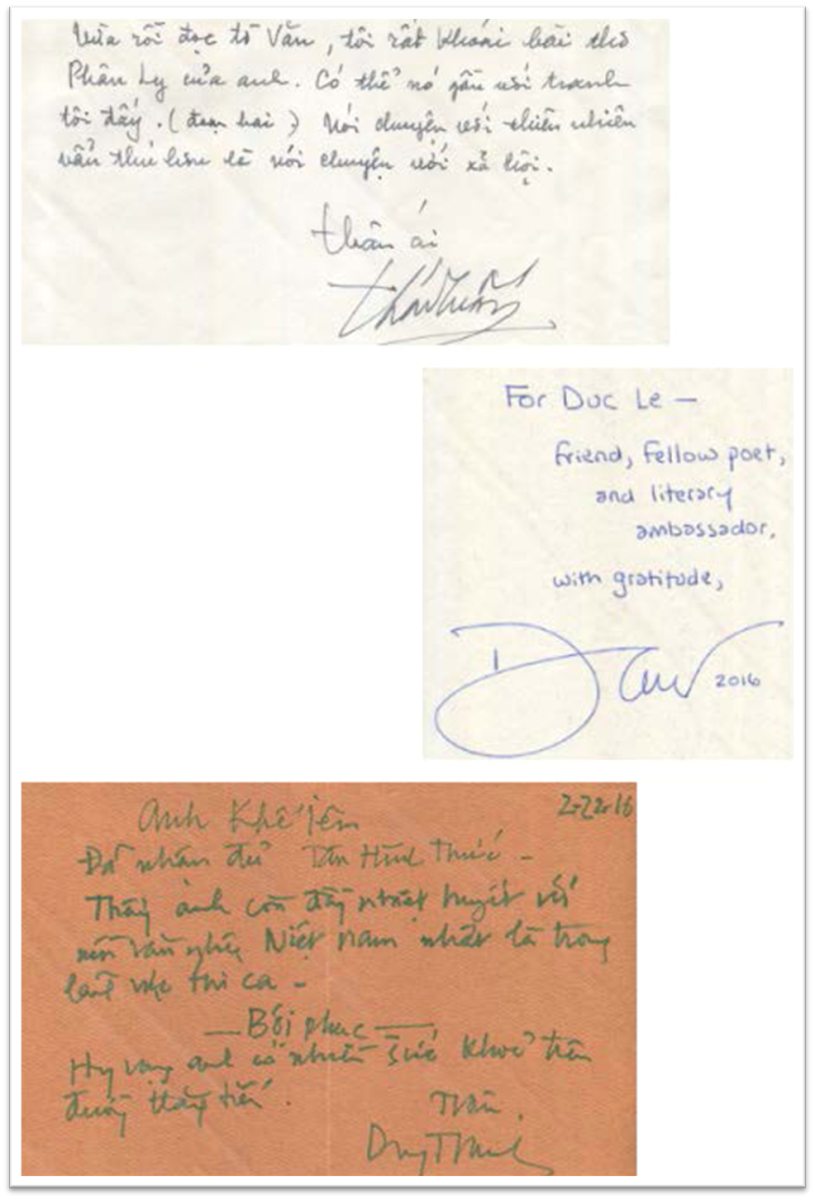 Vừa rồi đọc tờ Văn, tôi rất khoái bài thơ
Phân Ly của anh. Có thể nó gần với tranh
tôi đấy. (đoạn hai) Nói chuyện với thiên nhiên
vẫn thú hơn là nói chuyện với xã hội.
thân ái
For Duc Le —
friend, fellow poet,
and literary
ambassador,
with gratitude,
2016
2-22-16
Anh Khế Iêm
Đã nhận đủ Tân Hình Thức -
Thấy anh còn đầy nhiệt huyết với
nền văn nghệ Việt Nam nhất là trong
lãnh vực thi ca -
— Bội phục —
Hy vọng anh có nhiều sức khoẻ trên
đường thẳng tiến.
Thân,
Duy Thanh